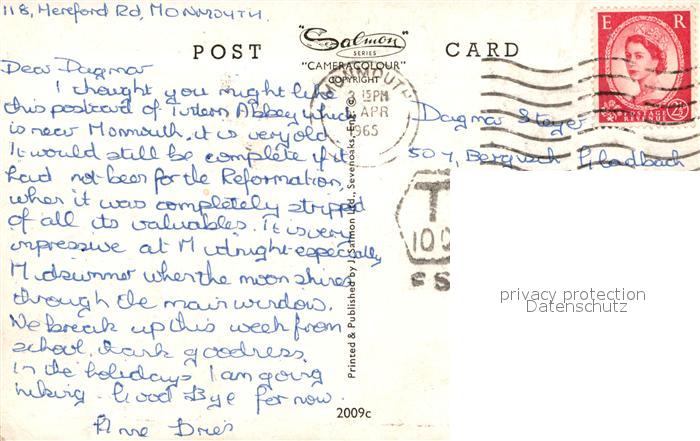 118, Hereford Rd, MONMOUTH.
POST CARD
"Salmon
SERIES
"CAMERACOLOUR"
COPYRIGHT
MONMOUTH
12 15PM
APR
1965
E R
POSTAGE
REVENUE
2½
Dear Dagmar
I thought you might like
this postcard of Tintern Abbey which
is near Monmouth. it is very old
It would still be complete if it
had not been for the Reformation,
when it was completely stripped
of all its valuables. It is very
impressive at Midnight especially
Midsummer when the moon shines
through the main window.
We break up this week from
school, thank goodness
in the holidays I am going
hiking. Good Bye for now.
Dagmar Steger
507, Bergisch Gladbach
T
10
Printed & Published by J. Salmon Ltd., Sevenoaks, Eng. ©
privacy protection
Datenschutz
2009c